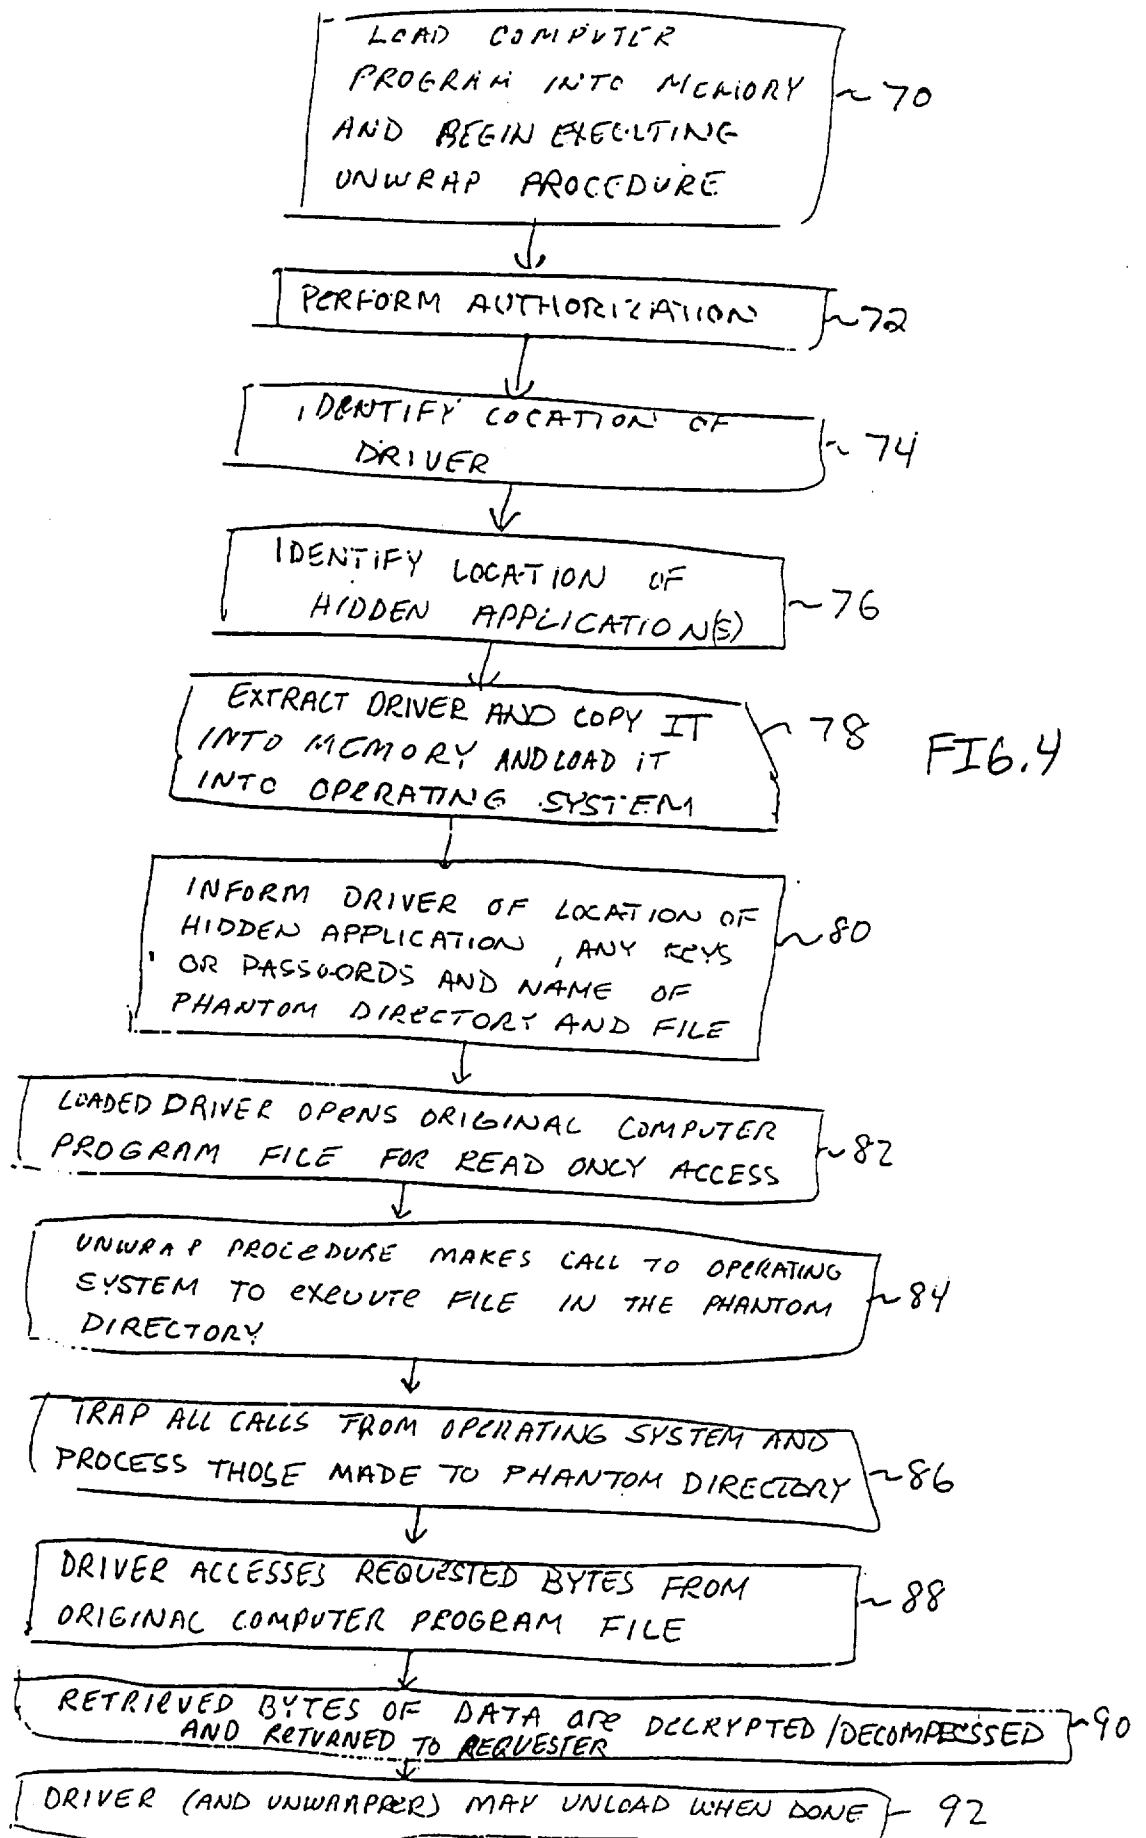 LOAD COMPUTER
PROGRAM INTO MEMORY
AND BEGIN EXECUTING
UNWRAP PROCEDURE
70
PERFORM AUTHORIZATION
72
IDENTIFY LOCATION OF
DRIVER
74
IDENTIFY LOCATION OF
HIDDEN APPLICATION(S)
76
EXTRACT DRIVER AND COPY IT
INTO MEMORY AND LOAD IT
INTO OPERATING SYSTEM
78
FIG.4
INFORM DRIVER OF LOCATION OF
HIDDEN APPLICATION, ANY KEYS
OR PASSWORDS AND NAME OF
PHANTOM DIRECTORY AND FILE
80
LOADED DRIVER OPENS ORIGINAL COMPUTER
PROGRAM FILE FOR READ ONLY ACCESS
82
UNWRAP PROCEDURE MAKES CALL TO OPERATING
SYSTEM TO EXECUTE FILE IN THE PHANTOM
DIRECTORY
84
TRAP ALL CALLS FROM OPERATING SYSTEM AND
PROCESS THOSE MADE TO PHANTOM DIRECTORY
86
DRIVER ACCESSES REQUESTED BYTES FROM
ORIGINAL COMPUTER PROGRAM FILE
88
RETRIEVED BYTES OF DATA are DECRYPTED/DECOMPRESSED
AND RETURNED TO REQUESTER
90
DRIVER (AND UNWRAPPER) MAY UNLOAD WHEN DONE
92